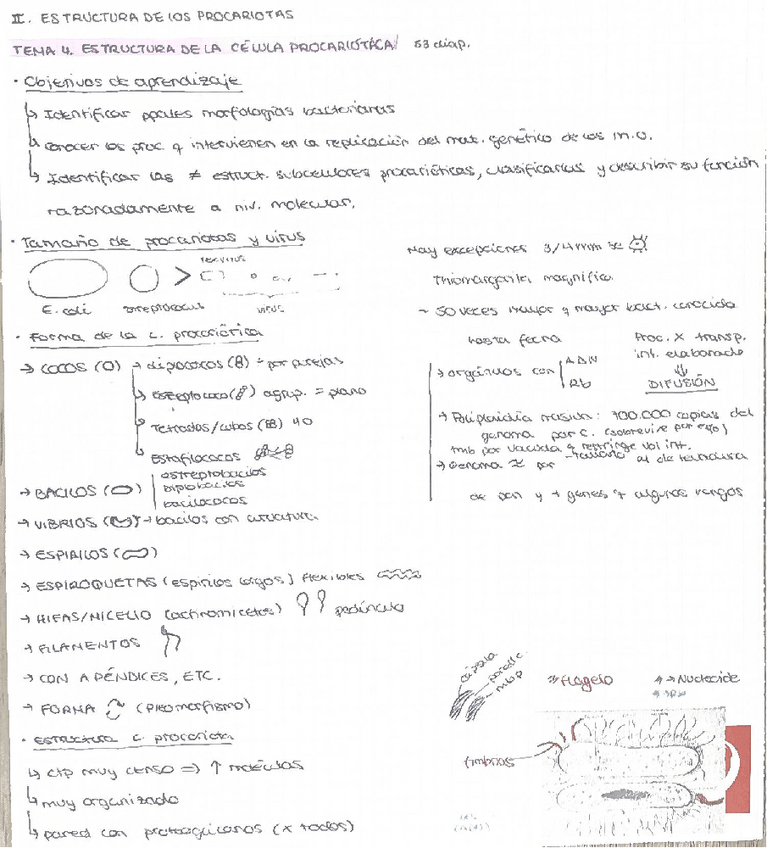 II. ESTRUCTURA DE LOS PROCARIOTAS
TEMA 4. ESTRUCTURA DE LA CÉLULA PROCARIÓTICA/ 53 diap.
· Objetivos de aprendizaje
↳ Identificar ppales morfologías bacterianas
↳ conocer los proc. q intervienen en la replicación del mat. genético de los m.o.
↳ Identificar las ≠ estruct. subcelulares procarióticas, clasificarlas y describir su función
razonadamente a niv. molecular.
· Tamaño de procariotas y virus
E. coli streptococus virus
Hay excepciones 3/4 mm ≈
Thiomargarita magnifica
~ 50 veces mayor q mayor bact. conocida
hasta fecha
→ orgánulos con ADN
Rb
Proc. X transp.
int. elaborado
⇓
DIFUSIÓN
→ Poliploidía masiva: 700.000 copias del
genoma por c. (sobrevive por eso)
tmb por vacuola q restringe vol int.
→ Genoma ≈ por tamaño al de levadura
de pan y + genes q algunos hongos
· Forma de la c. procariótica
→ COCOS (O) → dipococos (8) = por parejas
↳ estreptococo agrup. = plano
↳ Tetradas/cubos (88) 40
↳ Estafilococos
→ BACILOS
estreptobacilos
Diplobacilos
bacilococos
→ VIBRIOS → bacilos con curvatura.
→ ESPIRILOS
→ ESPIROQUETAS (espirilos largos) flexibles
→ HIFAS/MICELIO (actinomicetos) pedúnculo
→ FILAMENTOS
→ CON APÉNDICES, ETC.
→ FORMA (pleomorfismo)
· Estructura c. procariota
↳ ctp muy denso => ↑ moléculas
↳ muy organizado
↳ pared con proteoglicanos (x todos)
cápsula
pared c.
mbp
Flagelo
→ Nucleoide
fimbrias